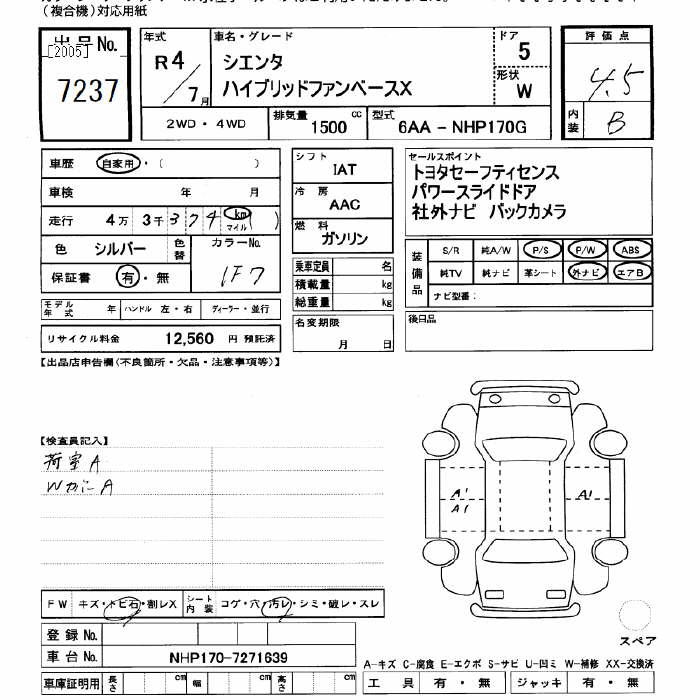 (複合機)対応用紙
出品No.
[2005]
7237
年式
R4/7月
車名・グレード
シエンタ
ハイブリッドファンベースX
ドア
5
形状
W
評価点
4.5
内装
B
2WD・4WD
排気量
1500 cc
型式
6AA－NHP170G
車歴 自家用・( )
車検 年 月
走行 4万 3千 374 km マイル ( )
色 シルバー 色替
カラーNo.
1F7
保証書 有・無
モデル年式 年 ハンドル 左・右 ディーラー・並行
リサイクル料金 12,560 円 預託済
シフト
IAT
冷房
AAC
燃料
ガソリン
乗車定員 名
積載量 kg
総重量 kg
名変期限
月 日
セールスポイント
トヨタセーフティセンス
パワースライドドア
社外ナビ バックカメラ
装備品
S/R 純A/W P/S P/W ABS
純TV 純ナビ 革シート 外ナビ エアB
ナビ型番：
後日品
【出品店申告欄(不良箇所・欠品・注意事項等)】
【検査員記入】
荷室A
WカにA
A1
A1
A1
FW キズ・トビ石・割レX
シート内装 コゲ・穴・汚レ・シミ・破レ・スレ
登録No.
車台No. NHP170-7271639
車庫証明用 長さ cm 幅 cm 高さ cm
スペア
A-キズ C-腐食 E-エクボ S-サビ U-凹ミ W-補修 XX-交換済
工具 有・無 ジャッキ 有・無